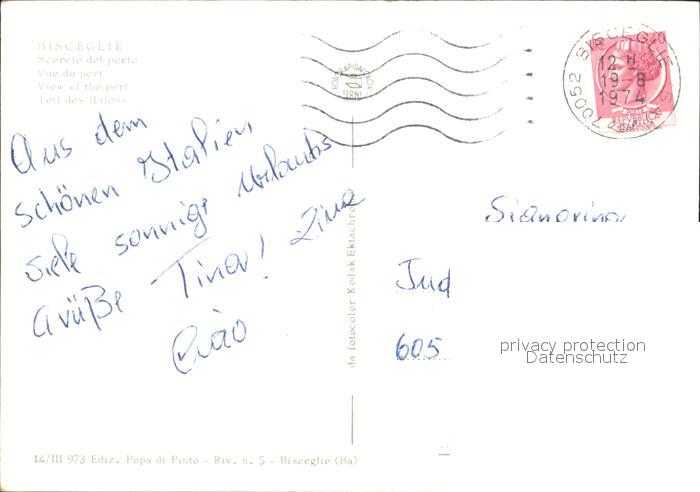 BISCEGLIE
Scorcio del porto
Vue du port
View of the port
Teil des Hafens
Aus dem
schönen Italien
viele sonnige Urlaubs
Grüße Tina!
Ciao
da fotocolor Kodak Ektachrome
TERNI
70052 BISCEGLIE
12 H
19-8
1974
Signorina
Jud
605
privacy protection
Datenschutz
14/III 973 Ediz. Popa di Pinto - Riv. n. 5 - Bisceglie (Ba)